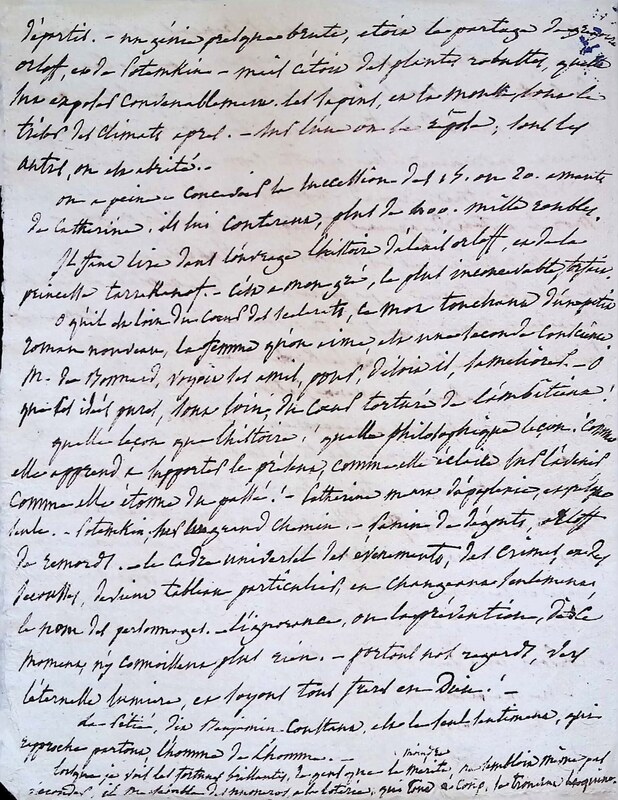 départis. - un génie presque brute, etoit le partage de gregoire
orloff, et de Potemkin - mais c'étoit des plantes robustes, quelle
sut exposer convenablement. les sapins, et la mousse, sous le
des climats apres. - sur l'une on se repose, sous les
autres, on est abrité. -
on a peine a concevoir la succession des 15. ou 20. amants
de Catherine. ils lui conterent, plus de 400. mille roubles.
Il faut lire dans l'ouvrage l'histoire d'alexis orloff, et de la
princesse tarrakanof. - C'est a mon gré, le plus inconcevable forfait.
o qu'il est loin du coeur des scelerats, ce mot touchant d'un petit
roman nouveau, la femme qu'on aime, est une seconde conscience
M. de Bonnard, voyoit ses amis, pour, disoit il, s'améliorer. - O
que ces idées pures, sont loin, du coeur torturé de l'ambitieux !
quelle leçon que l'histoire ! quelle philosophique leçon ! comme
elle apprend a supporter le présent, comme elle éclaire sur l'avenir
comme elle étonne du passé ! - Catherine meurt d'apoplexie, et presque
seule. - Potemkin, sur un grand chemin. - Panin de dégouts, orloff
de remords. - le cadre universel des évenements, des crimes, et des
secousses, devient tableau particulier, en changeant seulement
le nom des personnages. - l'ignorance, ou la prévention, dès ce
moment, n'y connoissent plus rien. - portons nos regards, vers
l'éternelle lumiere, et soyons tous freres en Dieu ! -
la Pitié, dit Benjamin Constant, est le seul sentiment, qui
rapproche partout l'homme de l'homme. -
moindre
lorsque je vois les fortunes brillantes, je pens que le mérite, ne sembloit même pas
seconder, il me semble des numeros a la loterie, que tout a coup, la fortune